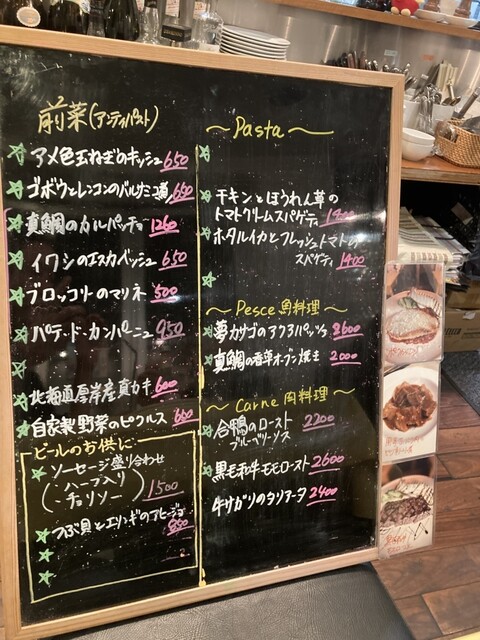 前菜(アンティパスト)
アメ色玉ねぎのキッシュ 650
ゴボウとレンコンのバルサミコ漬 650
真鯛のカルパッチョ 1260
イワシのエスカベッシュ 650
ブロッコリーのマリネ 500
パテ・ド・カンパーニュ 950
北海道厚岸産真カキ 600
自家製野菜のピクルス 600
ビールのお供に
ソーセージ盛り合わせ
(・ハーブ入り
・チョリソー) 1500
つぶ貝とエリンギのアヒージョ 850
~Pasta~
チキンとほうれん草の
トマトクリームスパゲティ
ホタルイカとフレッシュトマトの
スパゲティ 1400
~Pesce 魚料理~
夢カサゴのアクアパッツァ 2600
真鯛の香草オーブン焼き 2000
~Carne 肉料理~
合鴨のロースト 2200
ブルーベリーソース
黒毛和牛モモロースト 2600
牛サガリのタリアータ 2400